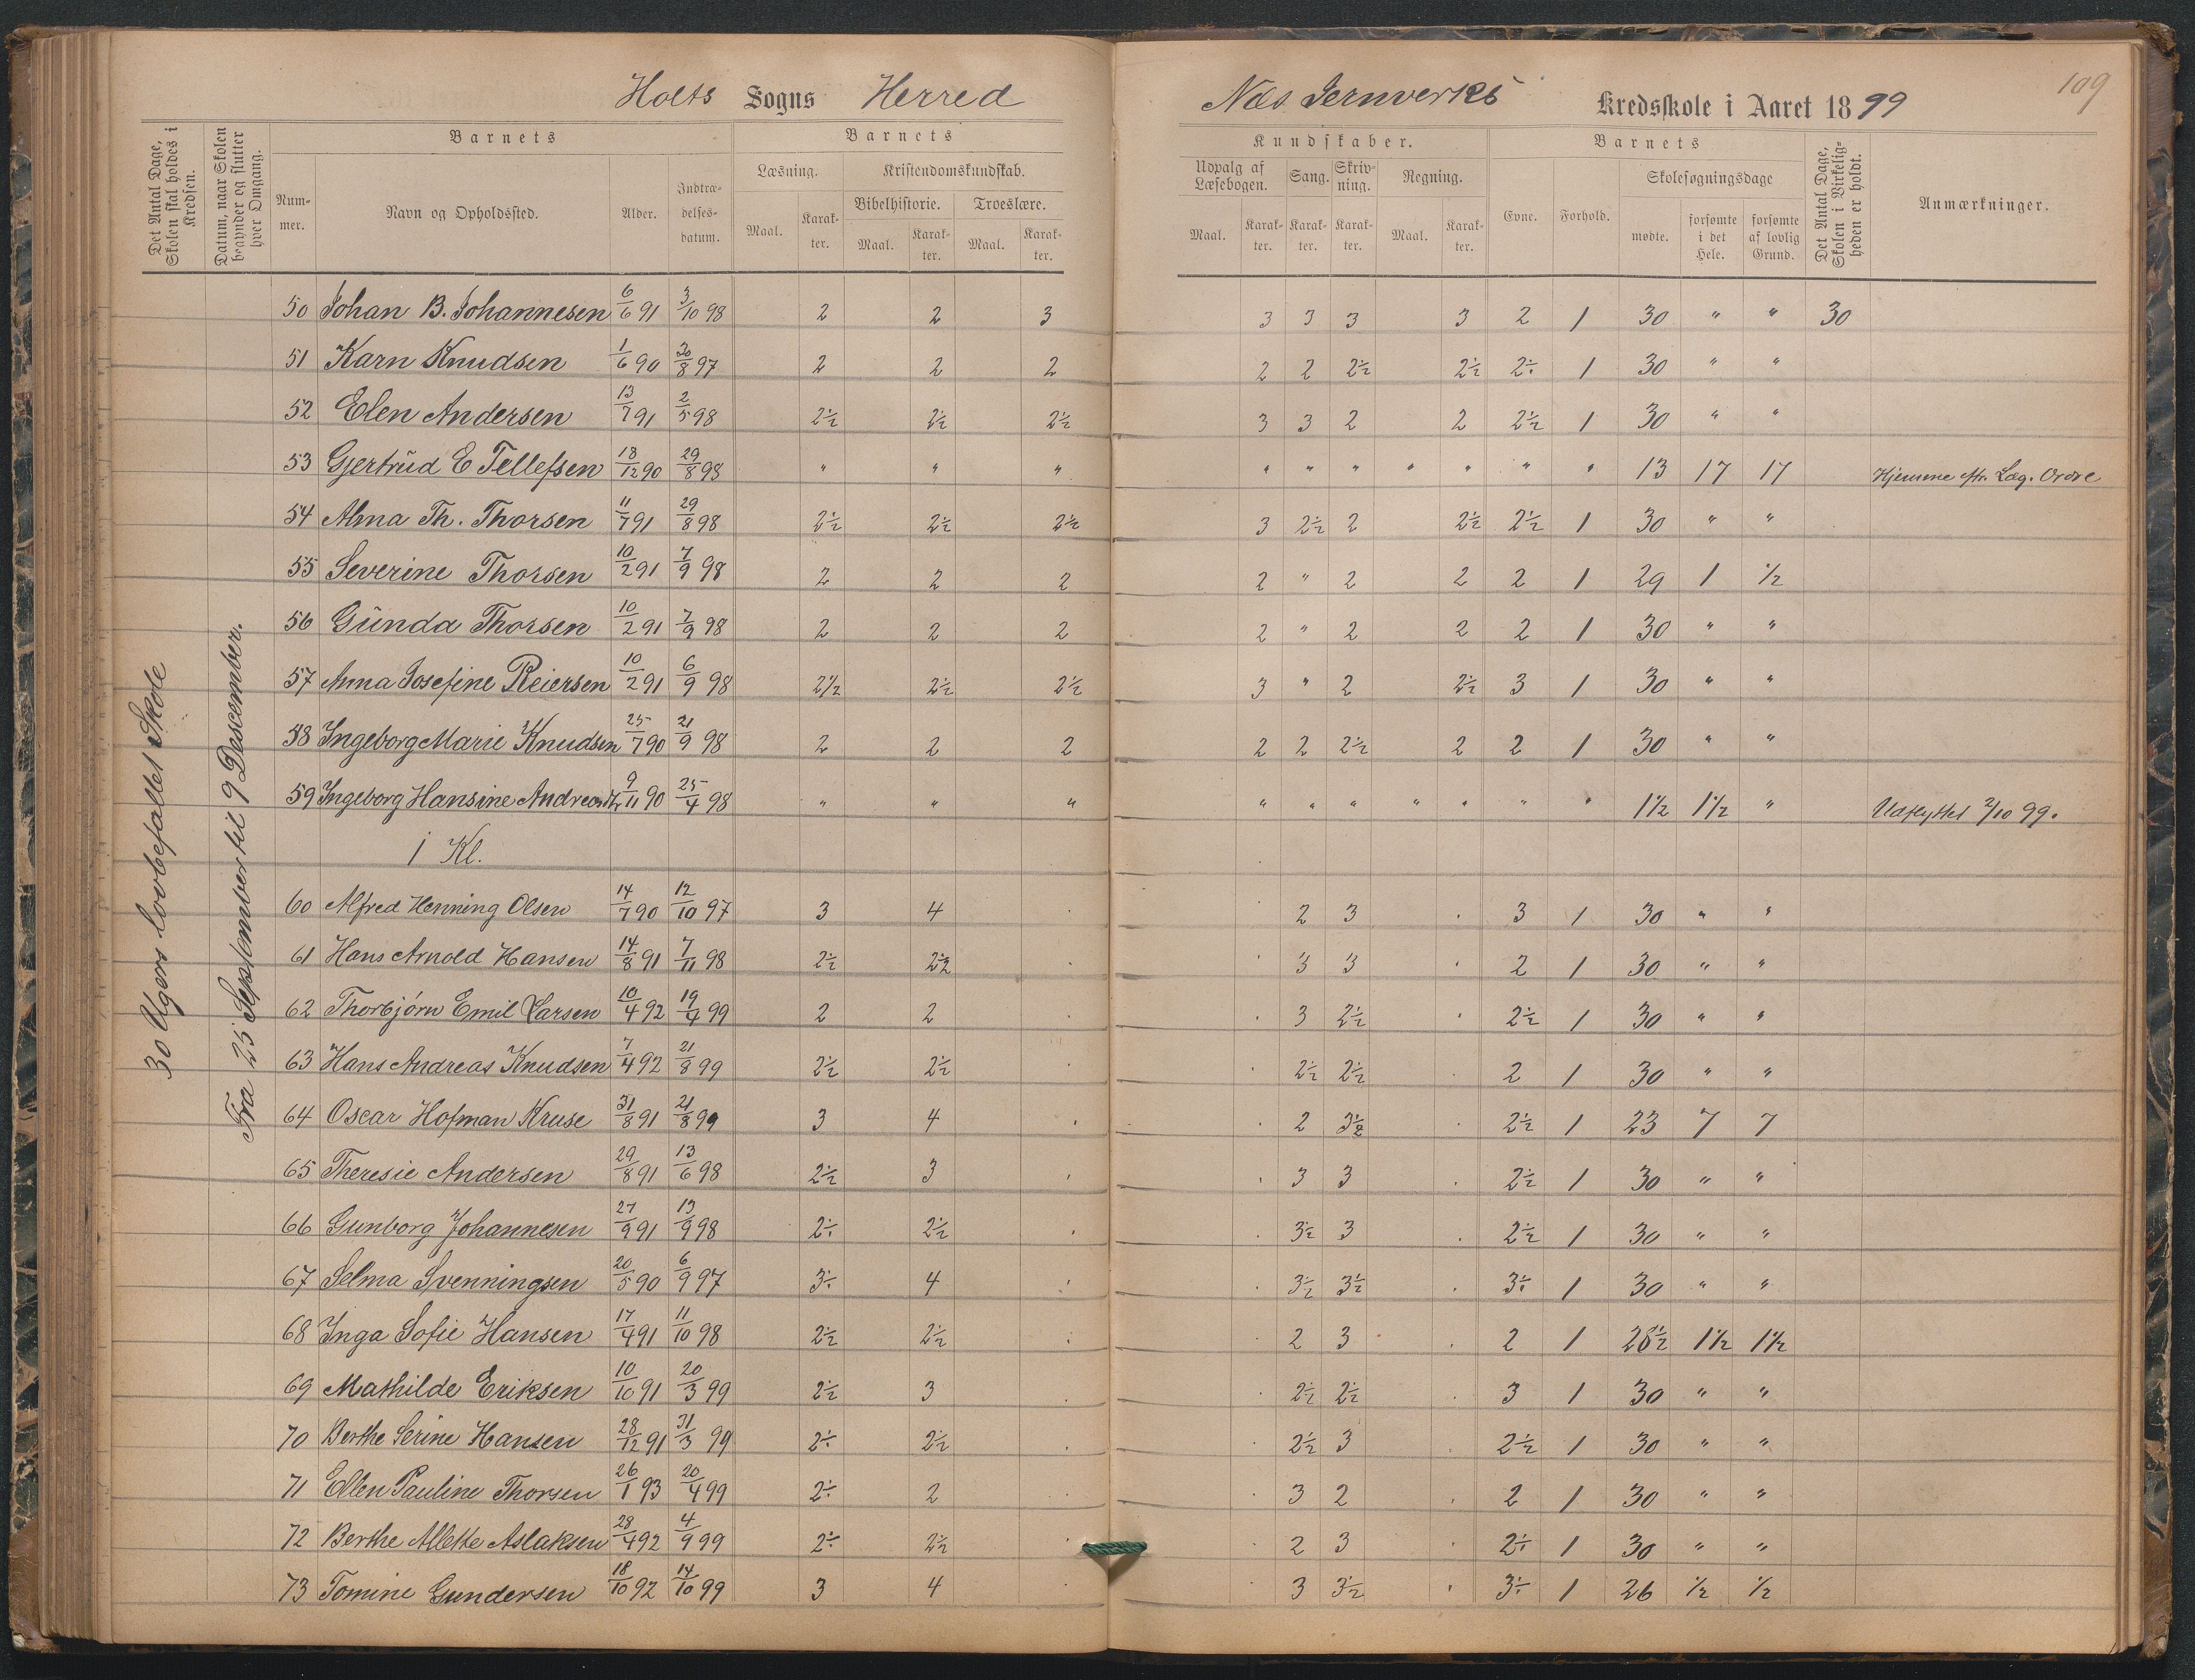 Holts Sogns Herred
Næs Jernverks Kredsskole i Aaret 1899
109
Det Antal Dage, Skolen skal holdes i Kredsen.
Datum, naar Skolen begynder og slutter hver Omgang.
Barnets
Nummer.
Navn og Opholdssted.
Alder.
Indtrædelsesdatum.
Barnets
Læsning.
Maal.
Karakter.
Kristendomskundskab.
Bibelhistorie.
Maal.
Karakter.
Troeslære.
Maal.
Karakter.
Kundskaber.
Udvalg af Læsebogen.
Maal.
Karakter.
Sang.
Karakter.
Skrivning.
Karakter.
Regning.
Maal.
Karakter.
Barnets
Evne.
Forhold.
Skolesøgningsdage
mødte.
forsømte i det Hele.
forsømte af lovlig Grund.
Det Antal Dage, Skolen i Virkeligheden er holdt.
Anmærkninger.
30 Ugers lovbefallet Skole
Fra 25 September til 9 Descember.
50 Johan B. Johannesen 6/6 91 3/10 98 2 2 3 3 3 3 3 2 1 30 " " 30
51 Karn Knudsen 1/6 90 30/8 97 2 2 2 2 2 2½ 2½ 2÷ 1 30 " "
52 Elen Andersen 13/7 91 2/5 98 2½ 2½ 2½ 3 3 2 2 2½ 1 30 " "
53 Gjertrud E Tellefsen 18/12 90 29/8 98 " " " " " " " " " " 13 17 17 Hjemme eftr. Læg. Ordre
54 Alma Th. Thorsen 11/7 91 29/8 98 2½ 2½ 2½ 3 2½ 2 2½ 2½ 1 30 " "
55 Severine Thorsen 10/2 91 7/9 98 2 2 2 2 " 2 2 2 1 29 1 ½
56 Gunda Thorsen 10/2 91 7/9 98 2 2 2 2 " 2 2 2 1 30 " "
57 Anna Josefine Reiersen 10/2 91 6/9 98 2½ 2½ 2½ 3 " 2 2½ 3 1 30 " "
58 Ingeborg Marie Knudsen 25/7 90 21/9 98 2 2 2 2 2 2½ 2 2 1 30 " "
59 Ingeborg Hansine Andreasdtr 9/11 90 25/4 98 " " " " " " " " " " 1½ 1½ " Udflyttet 2/10 99.
1 Kl.
60 Alfred Henning Olsen 14/7 90 12/10 97 3 4 2 3 3 1 30 " "
61 Hans Arnold Hansen 14/8 91 7/11 98 2½ 2½ 3 3 2 1 30 " "
62 Thorbjørn Emil Larsen 10/4 92 19/4 99 2 2 3 2½ 2½ 1 30 " "
63 Hans Andreas Knudsen 7/4 92 21/8 99 2½ 2½ 2½ 2½ 2 1 30 " "
64 Oscar Hofman Kruse 31/8 91 21/8 99 3 4 2 3½ 2½ 1 23 7 7
65 Theresie Andersen 29/8 91 13/6 98 2½ 3 3 3 2½ 1 30 " "
66 Gunborg Johannesen 27/9 91 13/9 98 2÷ 2½ 3½ 3 2½ 1 30 " "
67 Selma Svenningsen 20/5 90 6/9 97 3÷ 4 3½ 3½ 3÷ 1 30 " "
68 Inga Sofie Hansen 17/4 91 11/10 98 2½ 2½ 2 3 2 1 28½ 1½ 1½
69 Mathilde Eriksen 10/10 91 20/3 99 2½ 3 2½ 2½ 3 1 30 " "
70 Berthe Serine Hansen 28/12 91 31/3 99 2÷ 2½ 2½ 3 2½ 1 30 " "
71 Ellen Pauline Thorsen 26/1 93 20/4 99 2÷ 2 3 2 2 1 30 " "
72 Berthe Allette Aslaksen 28/4 92 4/9 99 2÷ 2½ 2 3 2÷ 1 30 " "
73 Tomine Gundersen 18/10 92 14/10 99 3 4 3 3½ 3÷ 1 26 ½ ½